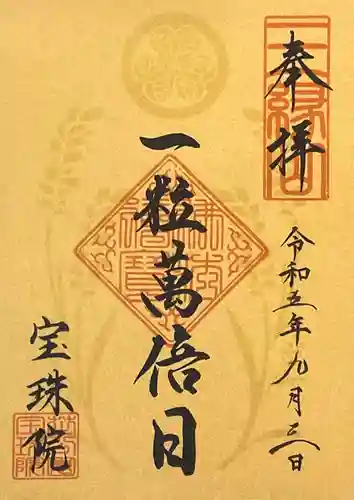 奉拝
令和五年九月三日
一粒萬倍日
宝珠院